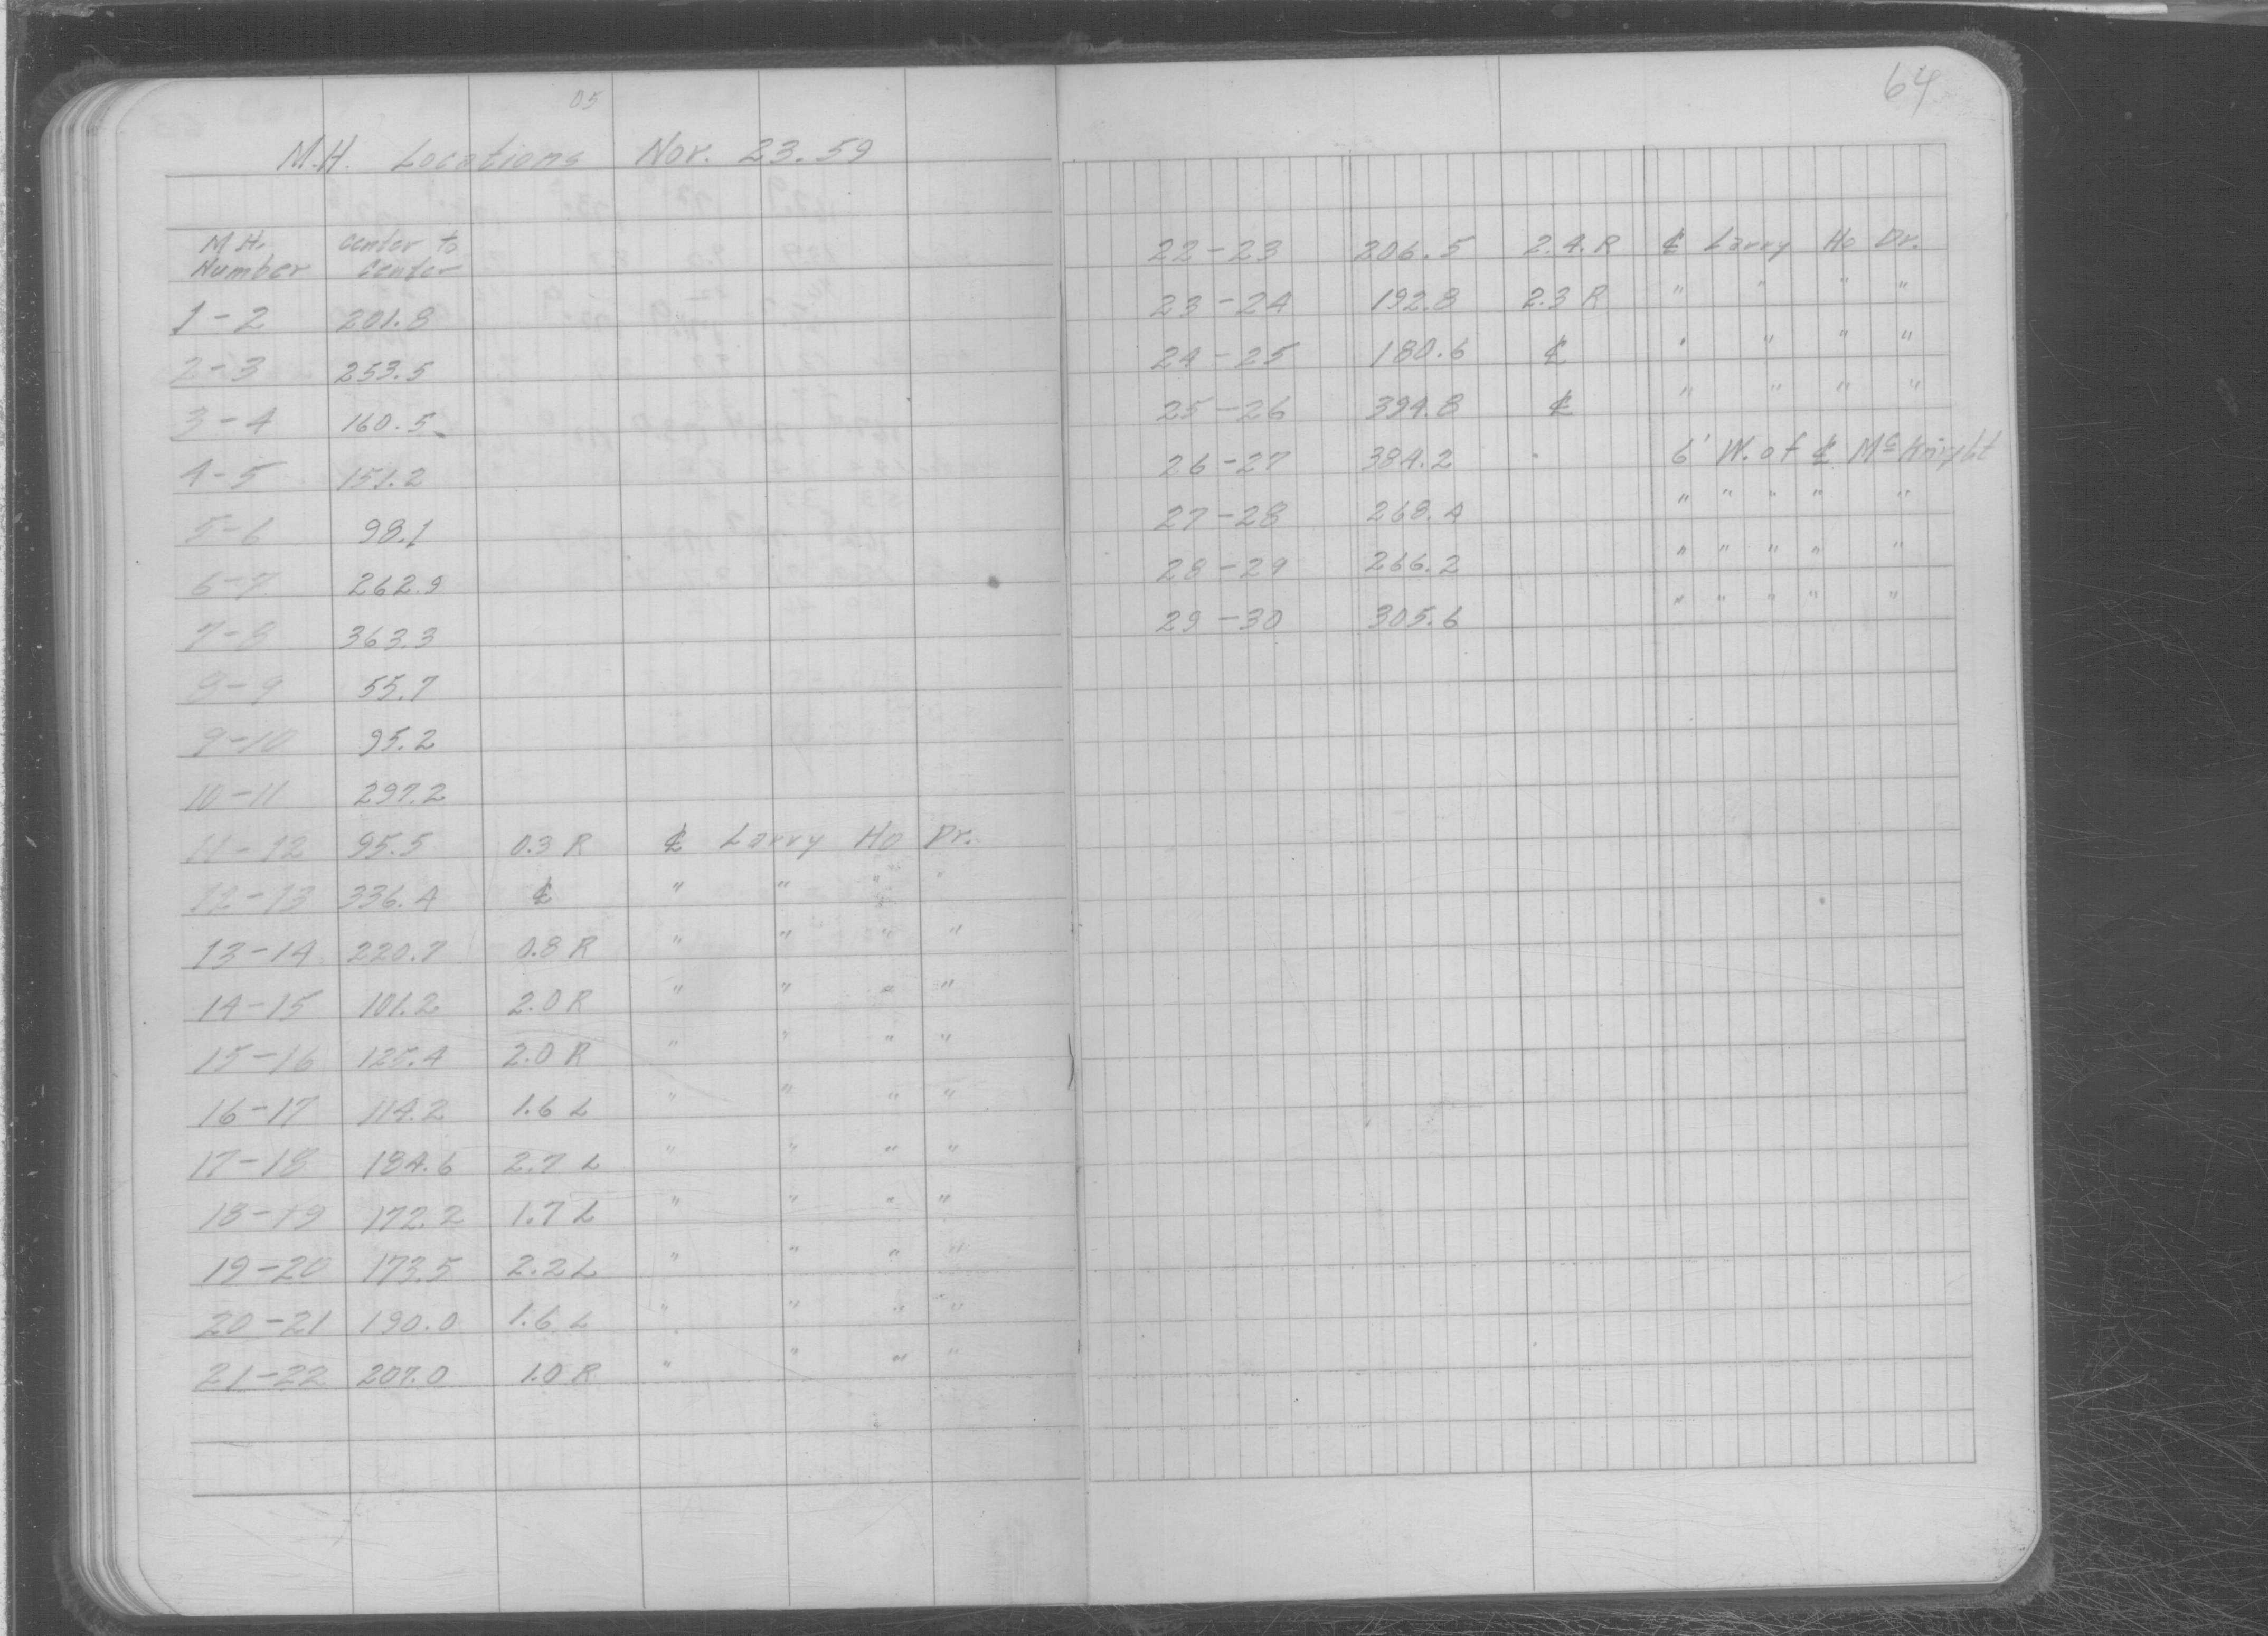 05
64
M.H. Locations Nov. 23. 59
M.H. Number Center to Center
1-2 201.8
2-3 253.5
3-4 160.5
4-5 151.2
5-6 98.1
6-7 262.9
7-8 363.3
8-9 55.7
9-10 95.2
10-11 297.2
11-12 95.5 0.3 R ℄ Larry Ho Dr.
12-13 336.4 ℄ " " " "
13-14 220.7 0.8 R " " " "
14-15 101.2 2.0 R " " " "
15-16 125.4 2.0 R " " " "
16-17 114.2 1.6 L " " " "
17-18 184.6 2.7 L " " " "
18-19 172.2 1.7 L " " " "
19-20 173.5 2.2 L " " " "
20-21 190.0 1.6 L " " " "
21-22 207.0 1.0 R " " " "
22-23 206.5 2.4 R ℄ Larry Ho Dr.
23-24 192.8 2.3 R " " " "
24-25 180.6 ℄ " " " "
25-26 394.8 ℄ " " " "
26-27 384.2 6' W. of ℄ McKnight
27-28 268.4 " " " " "
28-29 266.2 " " " " "
29-30 305.6 " " " " "